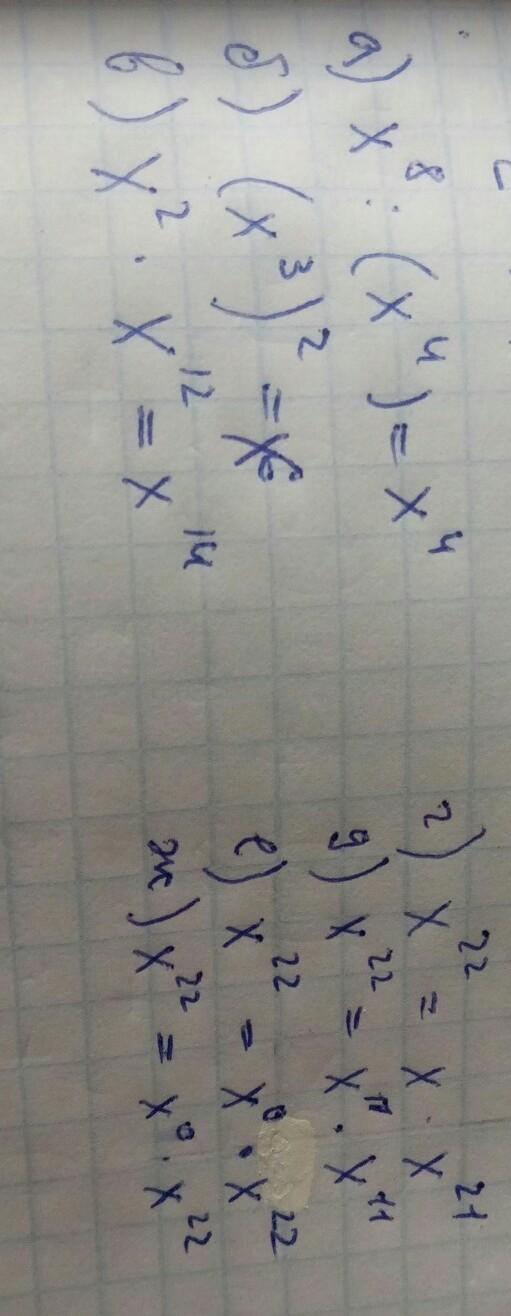 а) x⁸ : (x⁴) = x⁴
б) (x³)² = x⁶
в) x² · x¹² = x¹⁴
г) x²² = x · x²¹
д) x²² = x¹¹ · x¹¹
е) x²² = x⁰ · x²²
ж) x²² = x⁰ · x²²